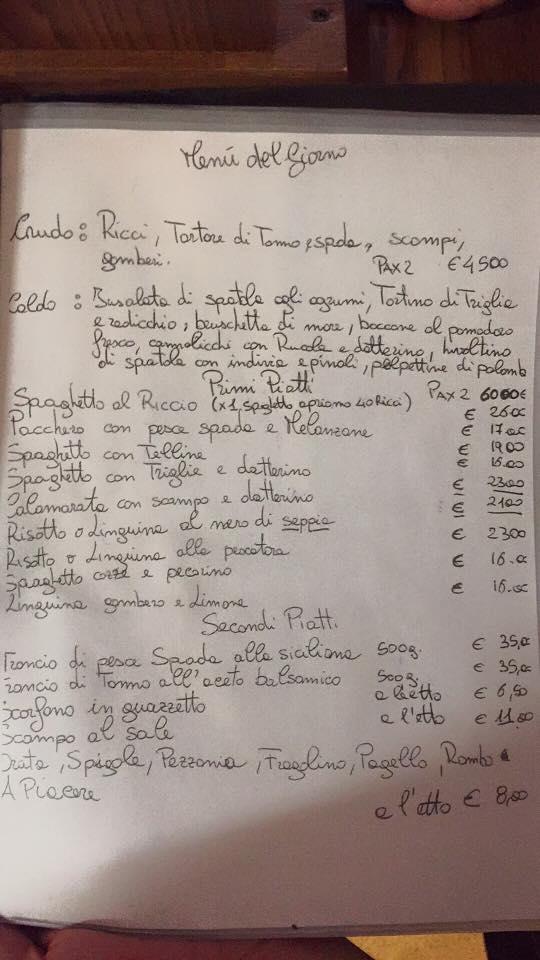 Menú del Giorno
Crudo: Ricci, Tartare di Tonno e spada, scampi,
gamberi. PAX 2 € 4500
Caldo: Busalata di spatola agli agrumi, Tortino di Triglia
e radicchio, bruschetta di mare, boccone al pomodoro
fresco, cannolicchi con Rucola e datterino, involtino
di spatola con indivia e pinoli, polpettine di palombo
PAX 2 6000€
Primi Piatti
Spaghetto al Riccio (x1 spaghetto apriamo 40 Ricci) € 26.00
Pacchero con pesce spada e Melanzane € 17.00
Spaghetto con Telline € 1900
Spaghetto con Triglie e datterino € 16.00
Calamarata con scampo e datterino € 2300
Risotto o Linguina al nero di seppia € 2100
Risotto o Linguina alla pescatora € 2300
Spaghetto cozze e pecorino € 16.00
Linguina gambero e Limone € 16.00
Secondi Piatti
Trancio di pesce Spada alla siciliana 500g. € 35,00
Trancio di Tonno all'aceto balsamico 500g. € 35,00
Scorfano in guazzetto a l'etto € 6,50
Scampo al sale a l'etto € 11.00
Orata, Spigola, Pezzonia, Fragolino, Pagello, Rombo
A Piacere a l'etto € 8,00